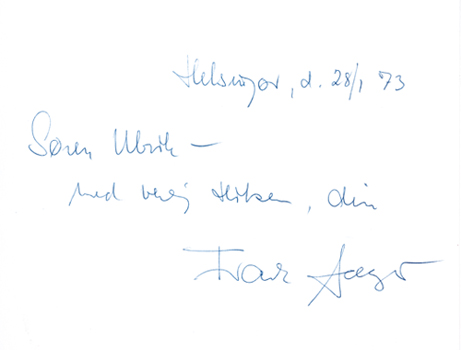 Helsingør, d. 28/1 73
Søren Ulrik –
med venlig Hilsen, din
Frank Jæger